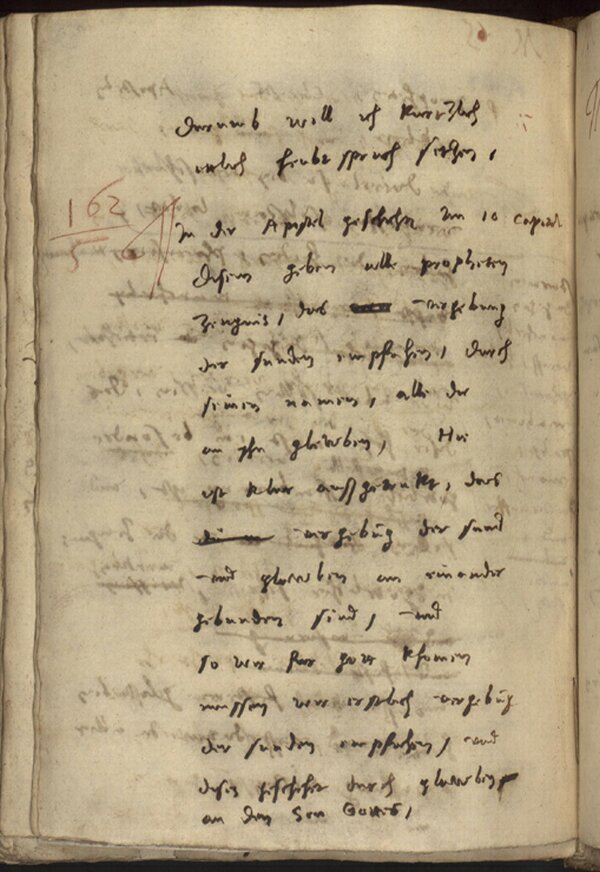 162
5
Darumb will ich kurtzlich
etlich heubt spruch setzen,
In der Apostel geschicht am 10 capitel
disem geben alle propheten
zeugnis, das vergebung
der sunden empfahen, durch
seinen namen, alle die
an yhn glewben, Hie
ist klar außgetrukt, das
vergebūg der sund
vnd glawben an einander
gebunden sind, vnd
so wir fur gott khomen
mussen wir erstlich vergebūg
der sunden empfahen, vnd
dises geschehe durch glawben
an den Son Gottes,